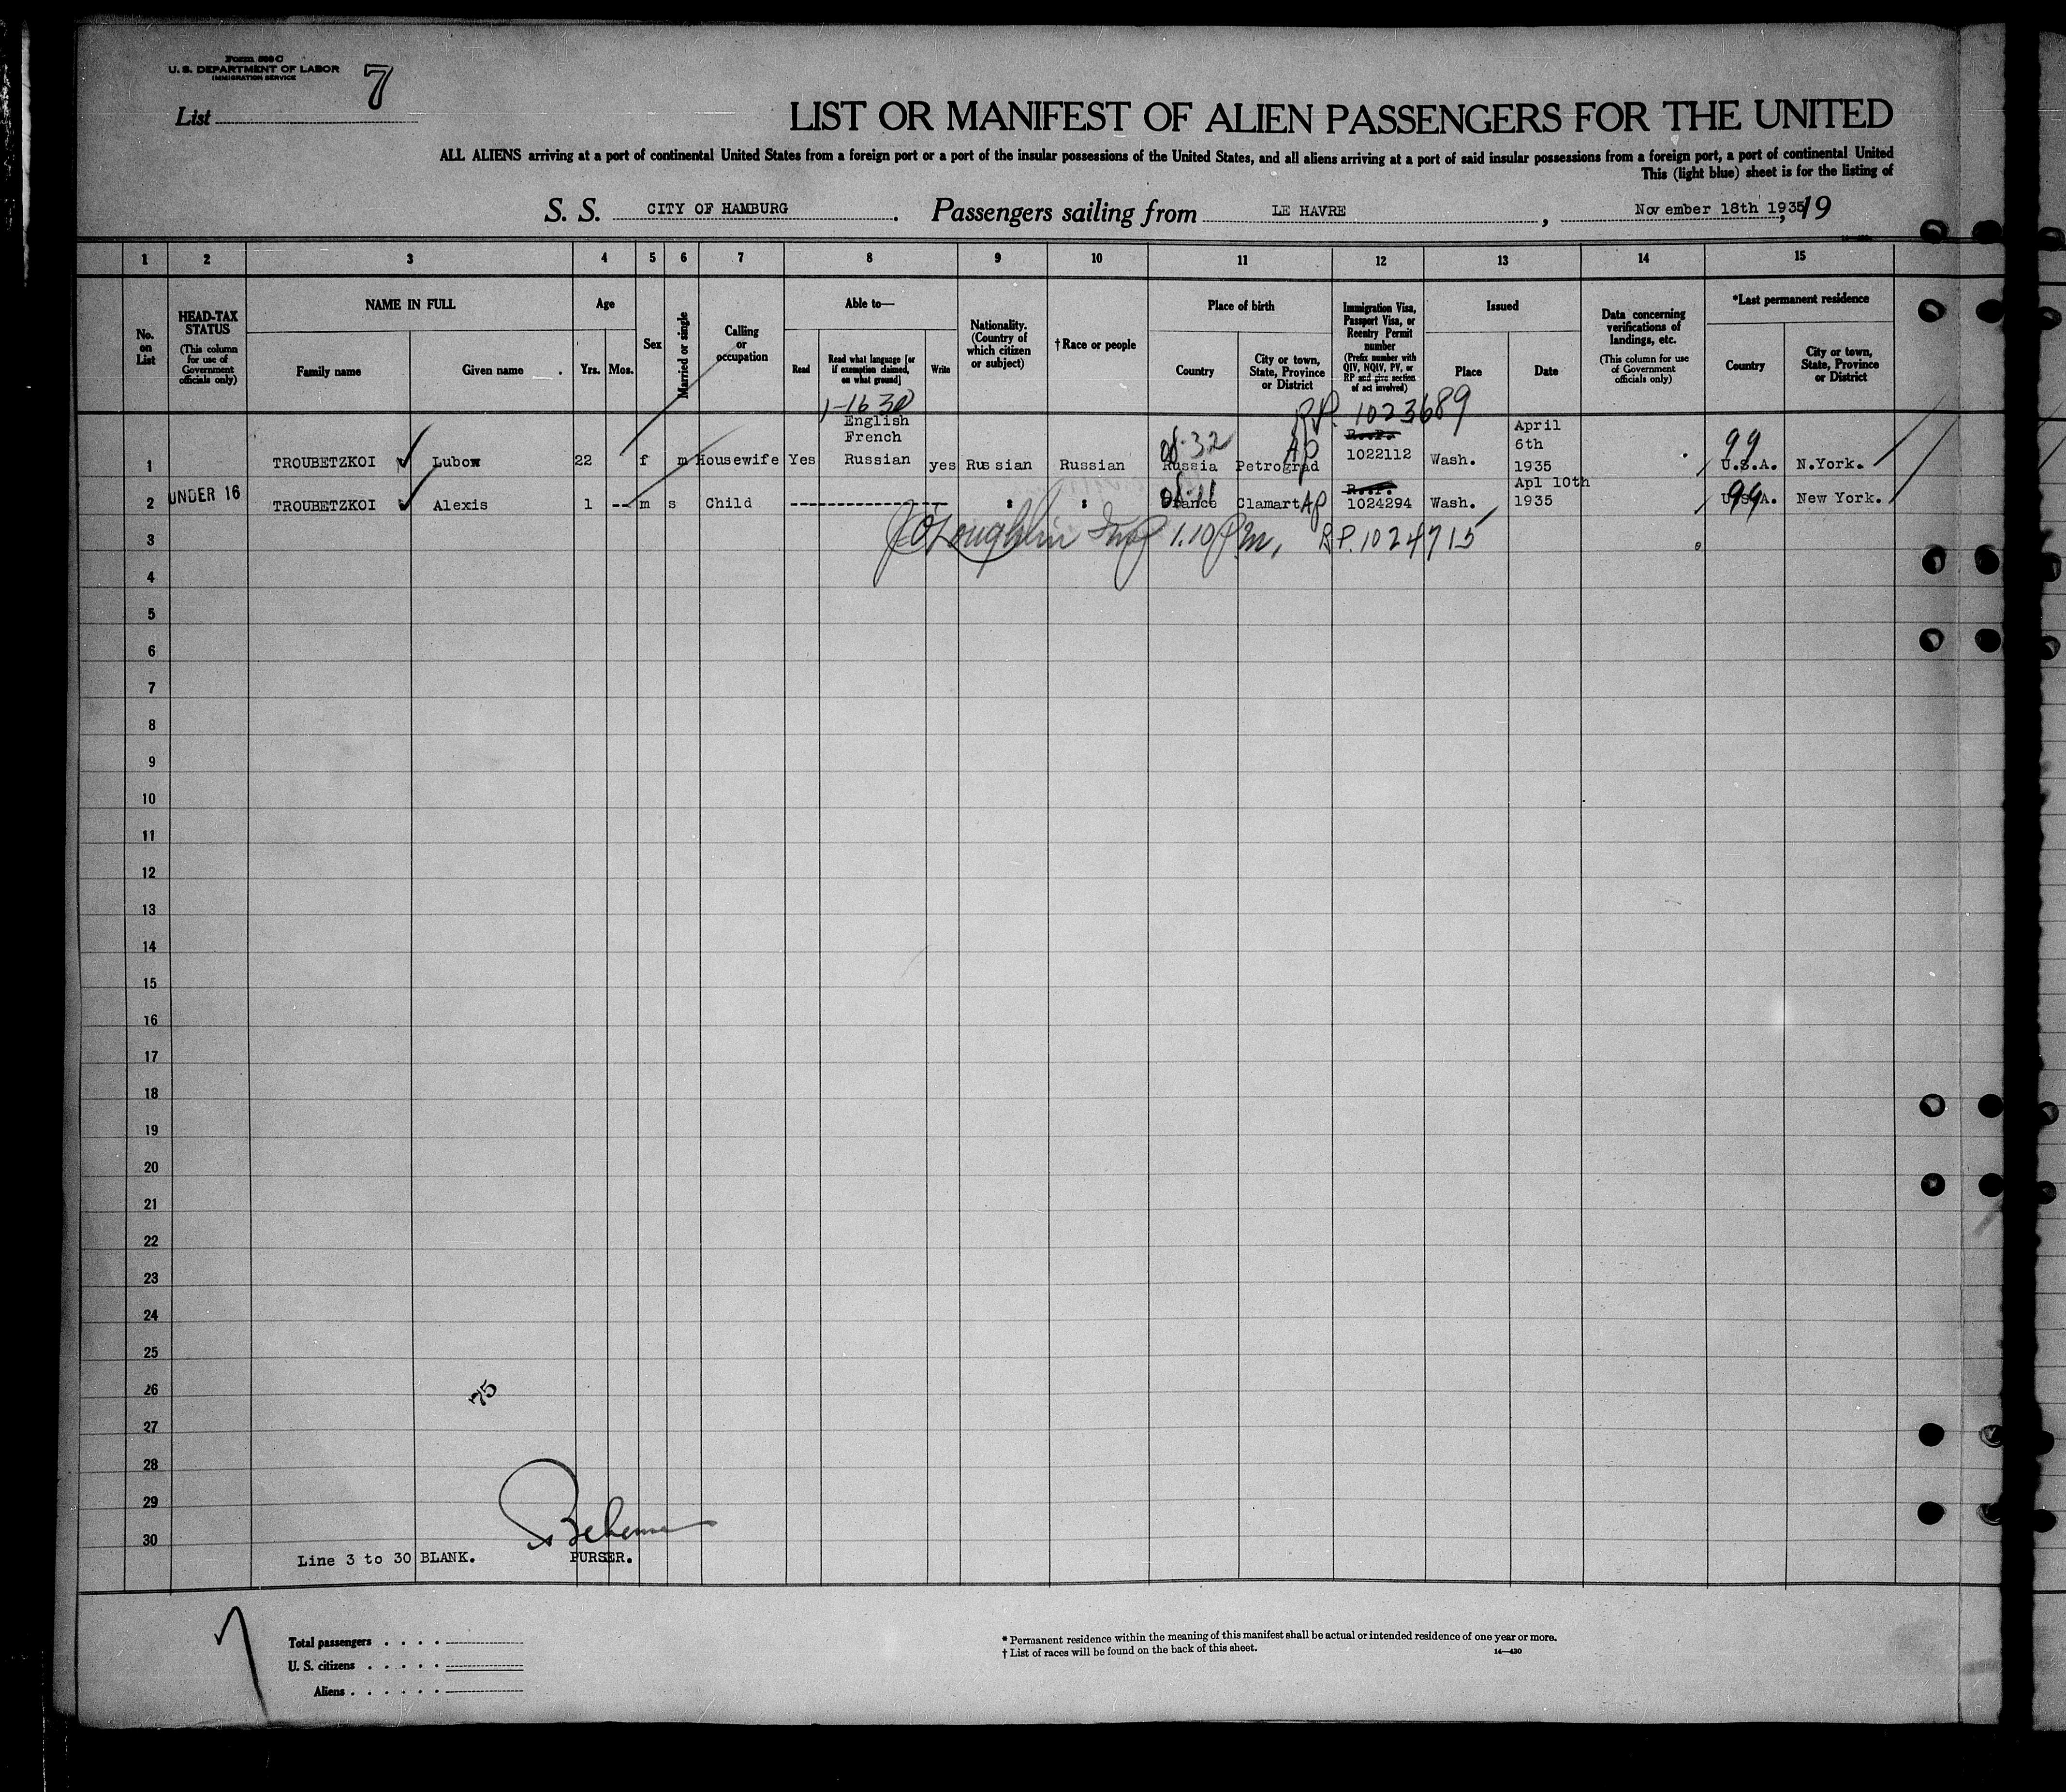 Form 500 C
U. S. DEPARTMENT OF LABOR
IMMIGRATION SERVICE
List 7
LIST OR MANIFEST OF ALIEN PASSENGERS FOR THE UNITED
ALL ALIENS arriving at a port of continental United States from a foreign port or a port of the insular possessions of the United States, and all aliens arriving at a port of said insular possessions from a foreign port, a port of continental United
This (light blue) sheet is for the listing of
S. S. CITY OF HAMBURG. Passengers sailing from LE HAVRE, November 18th 1935, 19
1 2 3 4 5 6 7 8 9 10 11 12 13 14 15
No. on List
HEAD-TAX STATUS (This column for use of Government officials only)
NAME IN FULL
Family name
Given name
Age
Yrs. Mos.
Sex
Married or single
Calling or occupation
Able to—
Read
Read what language [or if exemption claimed, on what ground]
Write
Nationality. (Country of which citizen or subject)
†Race or people
Place of birth
Country
City or town, State, Province or District
Immigration Visa, Passport Visa, or Reentry Permit number (Prefix number with QIV, NQIV, PV, or RP and give section of act involved)
Issued
Place
Date
Data concerning verifications of landings, etc. (This column for use of Government officials only)
*Last permanent residence
Country
City or town, State, Province or District
1-16 30
RP. 1023689
1 TROUBETZKOI Lubow 22 f m Housewife Yes English French Russian yes Russian Russian Russia Petrograd AP 1022112 Wash. April 6th 1935 99 U.S.A. N.York.
2 UNDER 16 TROUBETZKOI Alexis 1 -- m s Child ---------------- " " France Clamart AP 1024294 Wash. Apl 10th 1935 99 U.S.A. New York.
3 J O'Loughlin Insp 1.10 P.M. RP. 1024715
4
5
6
7
8
9
10
11
12
13
14
15
16
17
18
19
20
21
22
23
24
25
26
75
27
28
29
30
Line 3 to 30 BLANK. PURSER.
Total passengers
U. S. citizens
Aliens
* Permanent residence within the meaning of this manifest shall be actual or intended residence of one year or more.
† List of races will be found on the back of this sheet.
14—430